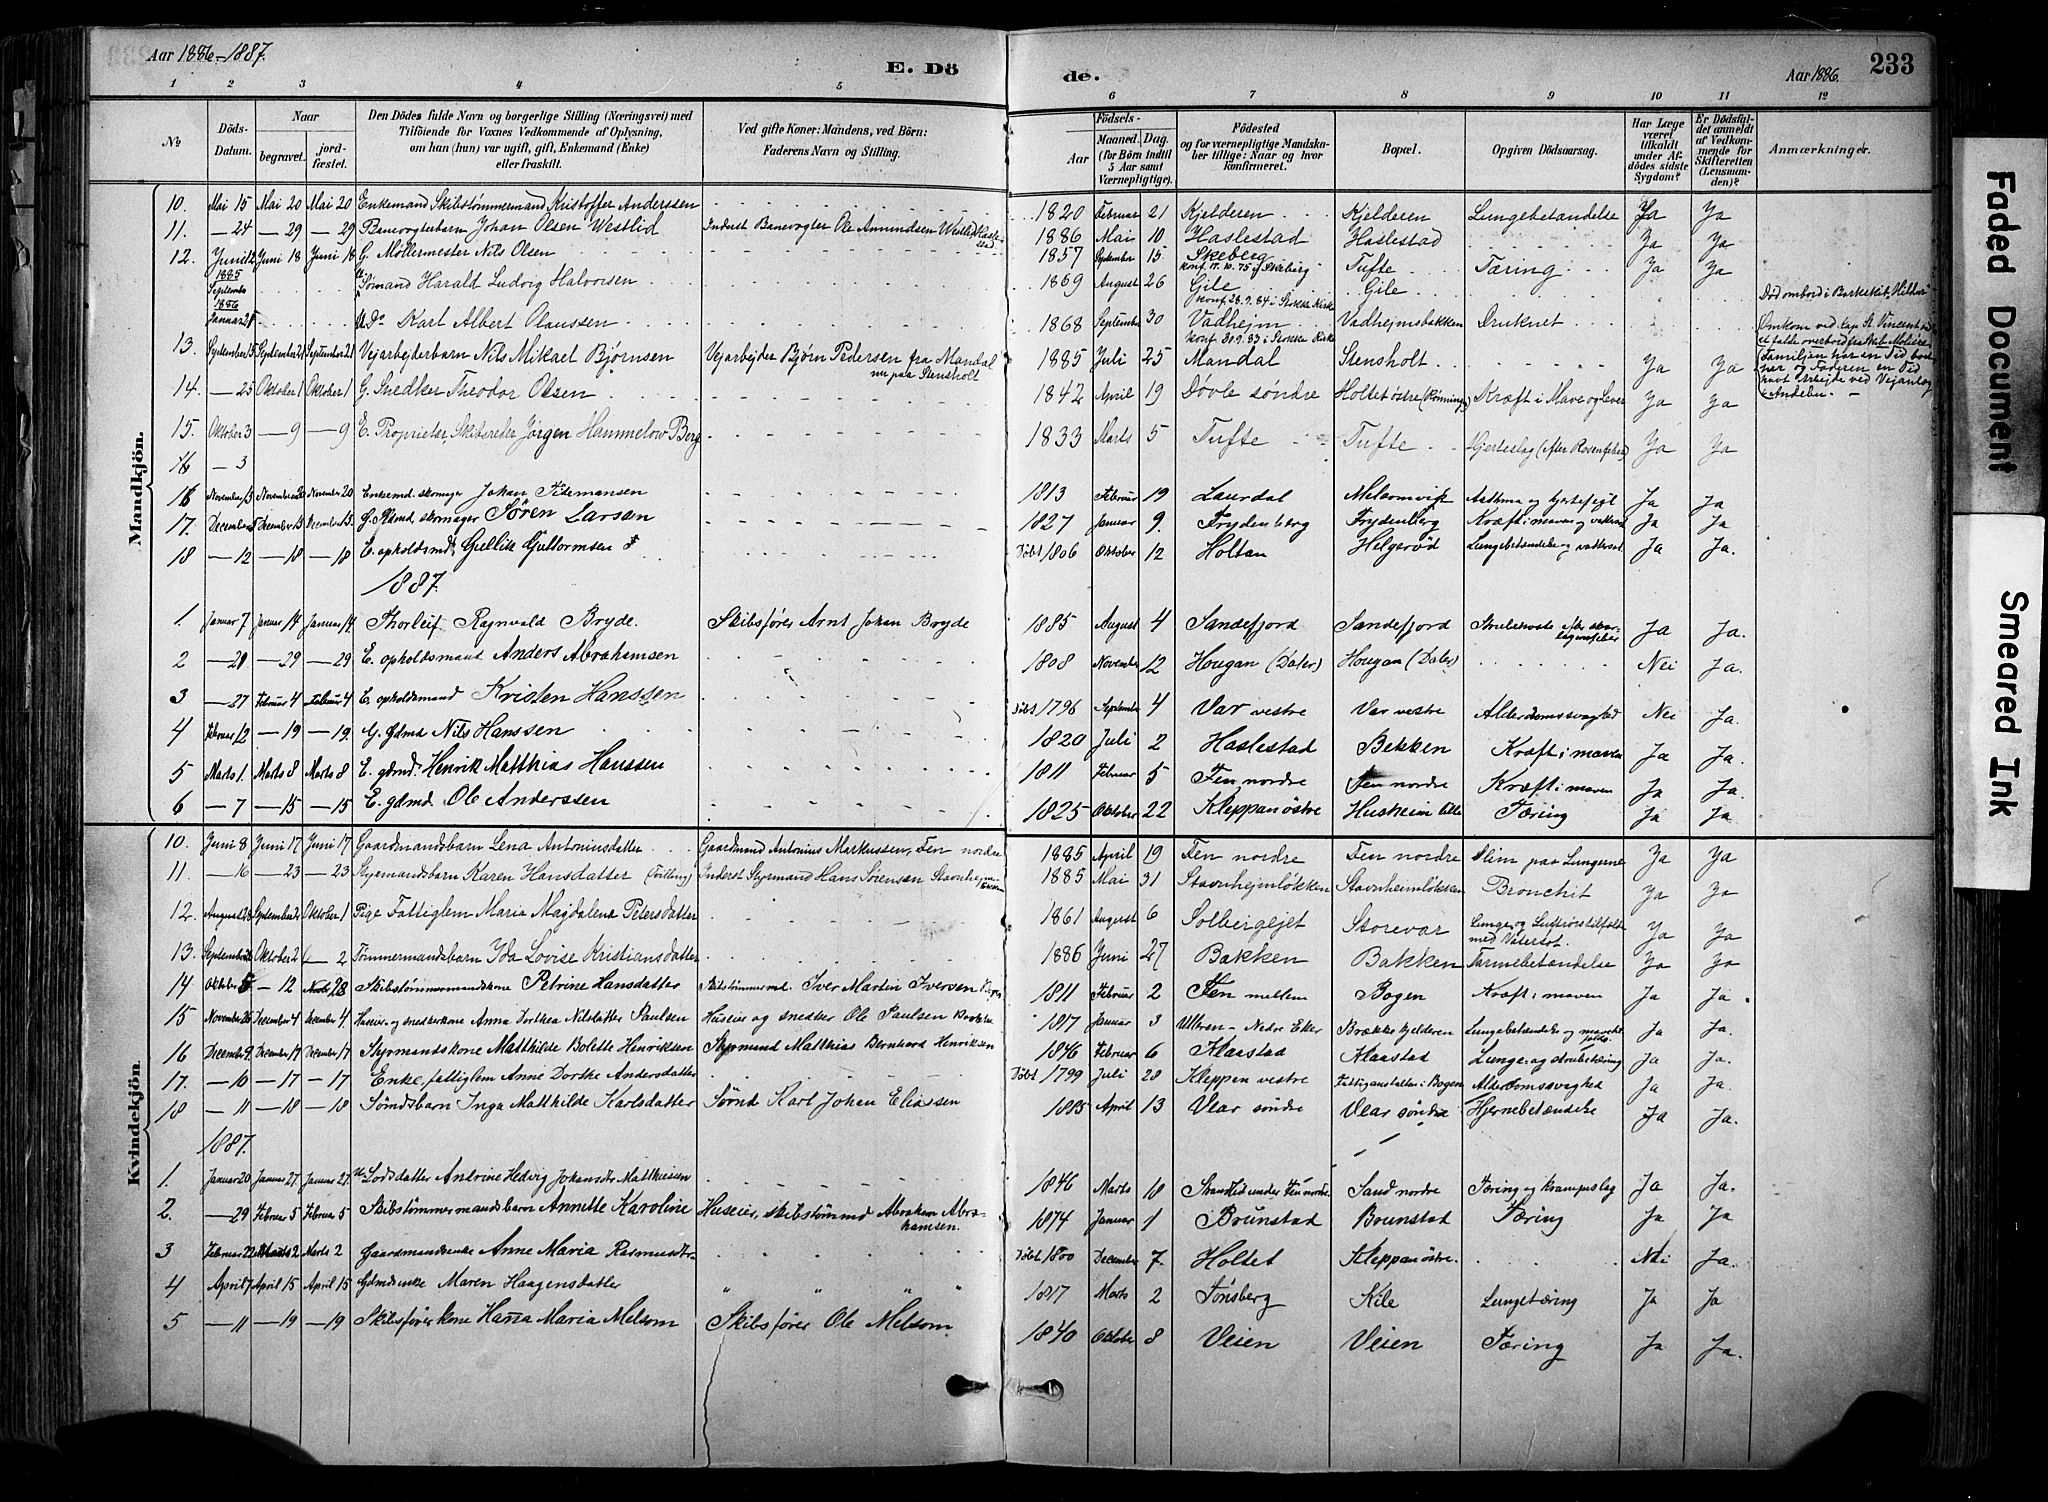 Aar 1886-1887.
E. Dö
de.
Aar 1886.
233
1 2 3 4 5 6 7 8 9 10 11 12
No.
Döds-Datum.
Naar
begravet.
jord-fæstet.
Den Dödes fulde Navn og borgerlige Stilling (Næringsvei) med
Tilföiende for Voxnes Vedkommende af Oplysning,
om han (hun) var ugift, gift, Enkemand (Enke)
eller fraskilt.
Ved gifte Koner: Mandens, ved Börn:
Faderens Navn og Stilling.
Födsels-
Aar
Maaned. Dag.
(for Börn indtil
5 Aar samt
Værnepligtige).
Födested
og for værnepligtige Mandska-
ber tillige: Naar og hvor
konfirmeret.
Bopæl.
Opgiven Dödsaarsag.
Har Læge
været
tilkaldt
under Af-
dödes sidste
Sygdom?
Er Dödsfal-
det anmeldt
af Vedkom-
mende for
Skifteretten
(Lensman-
den)?
Anmærkninger.
Mandkjön.
10. Mai 15 Mai 20 Mai 20 Enkemand Skibstömmermand Kristoffer Anderssen 1820 Februar 21 Kjelderen Kjelderen Lungebetændelse Ja Ja
11. — 24 — 29 — 29 Banevogterbarn Johan Olsen Westlid Inderst Banevogter Ole Amundsen Westlid Haslestad 1886 Mai 10 Haslestad Haslestad Ja Ja
12. Juni 12 Juni 18 Juni 18 G. Möllermester Nils Olsen 1857 September 15 Skeberg Tufte Tæring Ja Ja
1885 September Sömand Harald Ludvig Halvorsen 1869 August 26 Gile Gile Död ombord i Barkskib "Hilda"
konf. 28.9.84 i Stokke Kirke
1886 Januar 28 U. Do Karl Albert Olaussen 1868 September 30 Vadhejm Vadhejmsbakken Druknet Omkom ved Cap St. Vincent
konf. 30.9.83 i Stokke Kirke
13. September 15 September 21 September 21 Vejarbejderbarn Nils Mikael Björnsen Vejarbejder Björn Pedersen fra Mandal nu paa Stensholt 1885 Juli 25 Mandal Stensholt Ja Ja Familjen har en Tid
og Faderen en Tid havt Arbejde ved Vejanlæg i Andebu. —
14. — 25 Oktober 1 Oktober 1 G. Snedker Theodor Olsen 1842 April 19 Døvle søndre Holtet östre (Rönningen) Kræft i Mave og Lever Ja Ja
15. Oktober 3 — 9 — 9 E. Proprietær, Skibsreder Jörgen Hammelow Berg 1833 Marts 5 Tufte Tufte Hjerteslag (efter Rosenfeber) Ja Ja
16 — 3
16 November 13 November 20 November 20 Enkemd. skomager Johan Tidemansen 1813 Februar 19 Laurdal Melsomvik Asthma og hjertefeil Ja Ja
17. December 5 December 13 December 13 G. Skomager Sören Larsen 1827 Januar 9. Frydenberg Frydenberg Kræft i maven Ja Ja
18 — 12 — 18 — 18 E. opholdsmd. Gullik Guttormsen 1806 Oktober 12 Holtan Helgeröd Lungebetændelse og vattersot Ja Ja.
1887.
1 Januar 7 Januar 14 Januar 14 Thorleif Ragnvald Bryde. Skibsförer Arnt Johan Bryde 1885 August 4 Sandefjord Sandefjord Ja Ja.
2 — 21 — 29 — 29 E. opholdsmand Anders Abrahamsen 1808 November 12 Hougan (Daler) Hougan (Daler) Nei Ja.
3 — 27 Februar 4 Februar 4 E. opholdsmand Kristen Hanssen döbt 1796 September 4 Var vestre Var vestre Alderdomssvaghed Nei Ja.
4 Februar 12 — 19 — 19. G. Gdmd Nils Hanssen 1820 Juli 2 Haslestad Bekken Kræft i maven Ja Ja.
5 Marts 1. Marts 8 Marts 8 E. gdmd. Henrik Matthias Hanssen 1811 Februar 5 Fen nordre Fen nordre Kræft i maven Ja Ja.
6 — 7 — 15 — 15 E. gdmd Ole Anderssen 1825 Oktober 22 Kleppan östre Huskeim lille Tæring Ja Ja
Kvindekjön.
10. Juni 8 Juni 17 Juni 17 Gaardmandsbarn Lena Antoniusdatter Gaardmand Antonius Markussen, Fen nordre 1885 April 19 Fen nordre Fen nordre Slim paa Lungerne Ja Ja
11. — 16 — 23 — 23 Styrmandsbarn Karen Hansdatter (Tvilling) Inderst Styrmand Hans Sörensen Stavnhejmløkken 1885 Mai 31 Stavnhejmløkken Stavnheimløkken Bronchit Ja Ja
12 August 28 September 2 Oktober 1 Pige Fattiglem Maria Magdalena Petersdatter 1861 August 6 Solbergejet Storevar Lunge og Luftrörstilfælde med Vatersot. Ja Ja
13. September Oktober 2 — 2 Tömmermandsbarn Ida Lovise Kristiansdatter 1886 Juni 27 Bakken Bakken Tarmebetændelse Ja Ja
14 Oktober 5 — 12 28 Skibstömmermandskone Petrine Hansdatter Skibstömmermd. Iver Martin Iversen Bogen 1811 Februar 2 Fen mellem Bogen Kræft i maven Ja Ja.
15 November 26 December 4 December 4 Huseier og snedkerkone Anna Dorthea Nilsdatter Paulsen Huseier og snedker Ole Paulsen 1817 Januar 3 Ullern – Nedre Eker Brække kjelderen Lungebetændelse og Ja Ja.
16 December 9 December 17 December 17 Styrmandskone Matthilde Bolette Henriksen Styrmand Matthias Bernhard Henriksen 1846 Februar 6 Klaastad Klaastad Lunge og strubetæring Ja Ja.
17. — 10 — 17 — 17 Enke, fattiglem Anne Dorthe Andersdatter döbt 1799 Juli 28 Kleppan vestre Fattiganstalten i Bogen Alderdomssvaghed Ja Ja.
18 — 11 — 18 — 18 Sömdsbarn Inga Matthilde Karlsdatter Sömd Karl Johan Eliassen 1885 April 13 Vear söndre Vear söndre Hjernebetændelse Ja Ja.
1887.
1. Januar 20 Januar 27. Januar 27. Lodsdatter Andrine Hedvig Johansdr Matthiesen 1846 Marts 18 Strandtid under Fen nordre Sand nordre Tæring og krampeslag Ja Ja.
2. — 29 Februar 5 Februar 5 Skibstömmermandsbarn Annette Karoline Huseier, skibstömmd Abraham Abrahamsen. 1874 Januar 1 Brunstad Brunstad Tæring Ja Ja
3 Februar 22 Marts 2 Marts 2 Gaardmandsenke Anne Maria Rasmusdtr döbt 1800 December 7. Holtet Kleppan östre. Nei Ja.
4 April 7 April 15 April 15 Gdmdsenke Maren Haagensdatter " " " " 1817 Marts 2 Tönsberg Kile Lungetæring Ja Ja
5 — 11 — 19 — 19 Skibsförerkone Hanna Maria Melsom Skibsförer Ole Melsom 1840 Oktober 8 Veien Veien Tæring Ja Ja.
Faded Document
Smeared Ink